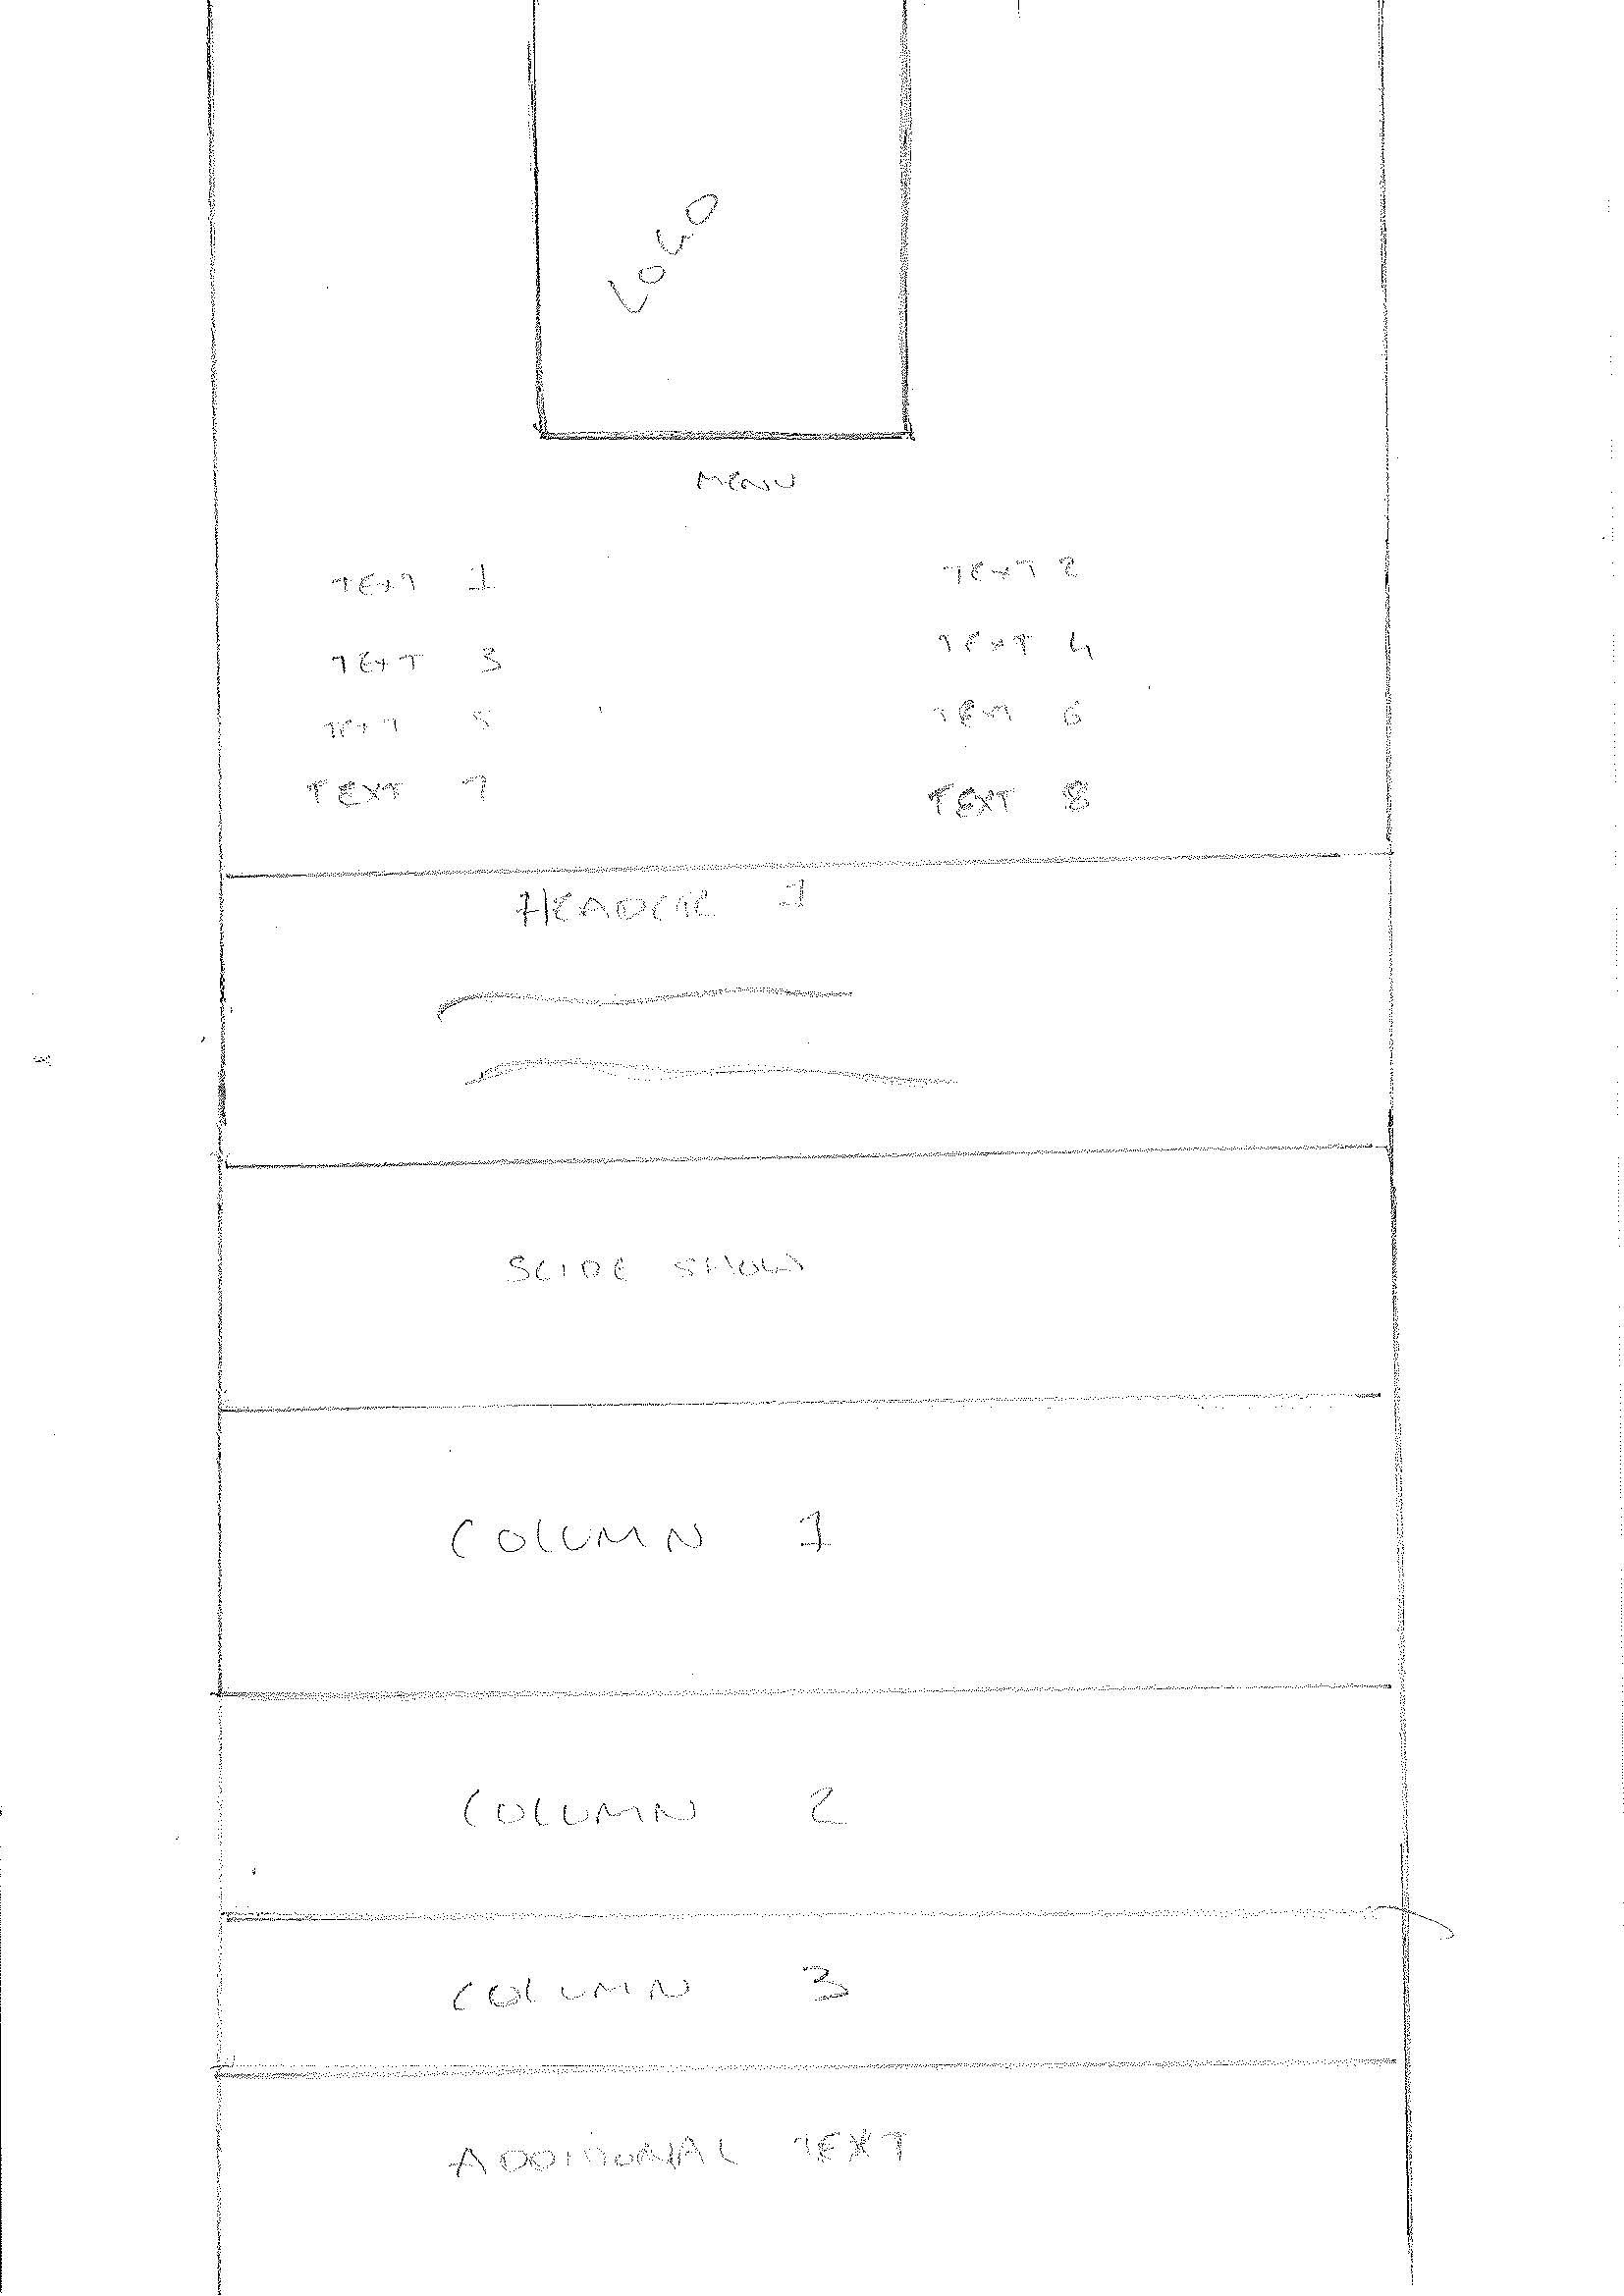 LOGO
MENU
TEXT 1 TEXT 2
TEXT 3 TEXT 4
TEXT 5 TEXT 6
TEXT 7 TEXT 8
HEADER 1
SLIDE SHOW
COLUMN 1
COLUMN 2
COLUMN 3
ADDITIONAL TEXT